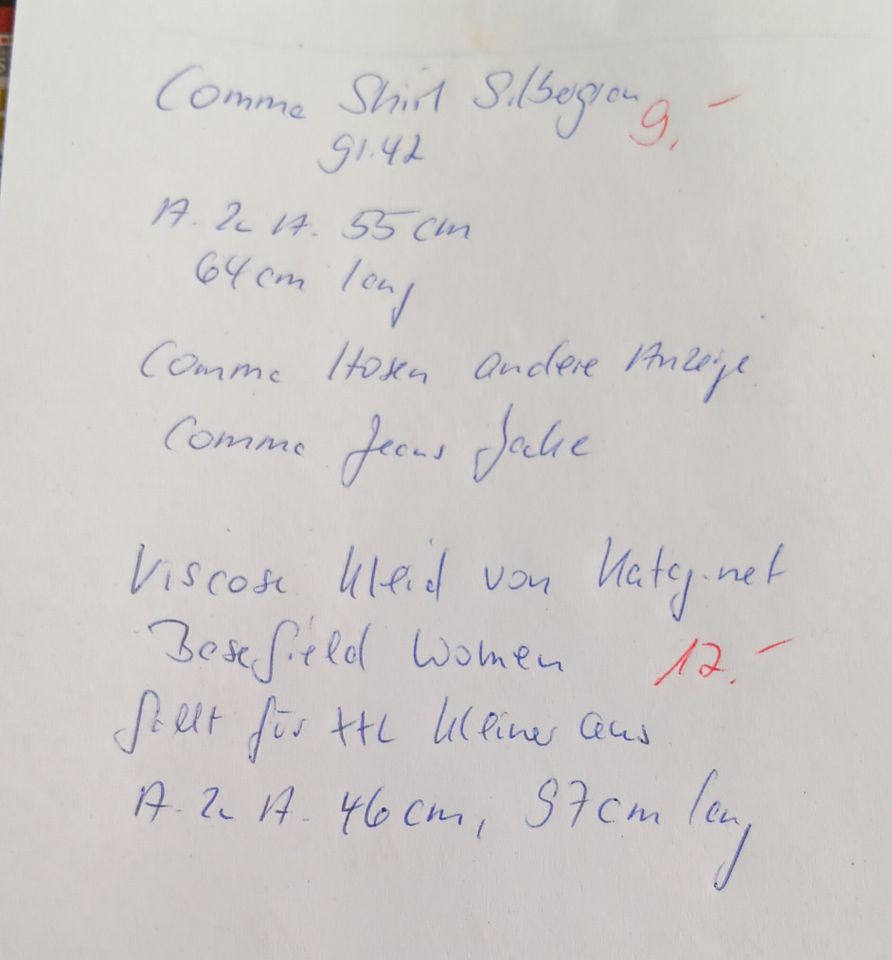 Comma Shirt Silbergrau 9,-
gr.42
A. zu A. 55 cm
64 cm lang
Comma Hosen andere Anzeige
Comma Jeans Jacke
Viscose Kleid von Katag.net
Basefield Women 12.-
fällt für XXL kleiner aus
A. zu A. 46 cm, 97 cm lang